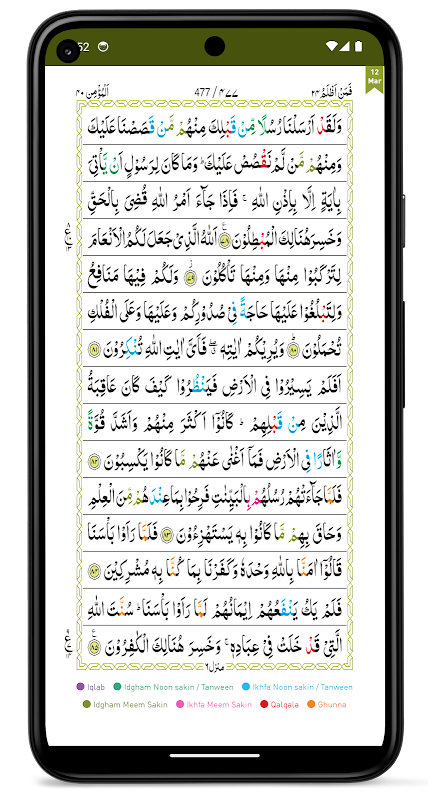 52
12
Mar
فَمَنْ اَظْلَمُ ۲۴ 477 / ۴۷۷ اَلْمُؤْمِن ۴۰
وَلَقَدْ اَرْسَلْنَا رُسُلًا مِّنْ قَبْلِكَ مِنْهُمْ مَّنْ قَصَصْنَا عَلَيْكَ
وَمِنْهُمْ مَّنْ لَّمْ نَقْصُصْ عَلَيْكَ ؕ وَمَا كَانَ لِرَسُوْلٍ اَنْ يَّاْتِيَ
بِاٰيَةٍ اِلَّا بِاِذْنِ اللّٰهِ ۚ فَاِذَا جَآءَ اَمْرُ اللّٰهِ قُضِيَ بِالْحَقِّ
وَخَسِرَ هُنَالِكَ الْمُبْطِلُوْنَ ۷۸ اَللّٰهُ الَّذِيْ جَعَلَ لَكُمُ الْاَنْعَامَ
لِتَرْكَبُوْا مِنْهَا وَمِنْهَا تَاْكُلُوْنَ ۷۹ وَلَكُمْ فِيْهَا مَنَافِعُ
وَلِتَبْلُغُوْا عَلَيْهَا حَاجَةً فِيْ صُدُوْرِكُمْ وَعَلَيْهَا وَعَلَى الْفُلْكِ
تُحْمَلُوْنَ ۸۰ وَيُرِيْكُمْ اٰيٰتِهٖ ۖ فَاَيَّ اٰيٰتِ اللّٰهِ تُنْكِرُوْنَ ۸۱
اَفَلَمْ يَسِيْرُوْا فِي الْاَرْضِ فَيَنْظُرُوْا كَيْفَ كَانَ عَاقِبَةُ
الَّذِيْنَ مِنْ قَبْلِهِمْ ؕ كَانُوْٓا اَكْثَرَ مِنْهُمْ وَاَشَدَّ قُوَّةً
وَّاٰثَارًا فِي الْاَرْضِ فَمَآ اَغْنٰى عَنْهُمْ مَّا كَانُوْا يَكْسِبُوْنَ ۸۲
فَلَمَّا جَآءَتْهُمْ رُسُلُهُمْ بِالْبَيِّنٰتِ فَرِحُوْا بِمَا عِنْدَهُمْ مِّنَ الْعِلْمِ
وَحَاقَ بِهِمْ مَّا كَانُوْا بِهٖ يَسْتَهْزِءُوْنَ ۸۳ فَلَمَّا رَاَوْا بَاْسَنَا
قَالُوْٓا اٰمَنَّا بِاللّٰهِ وَحْدَهٗ وَكَفَرْنَا بِمَا كُنَّا بِهٖ مُشْرِكِيْنَ ۸۴
فَلَمْ يَكُ يَنْفَعُهُمْ اِيْمَانُهُمْ لَمَّا رَاَوْا بَاْسَنَا ؕ سُنَّتَ اللّٰهِ
الَّتِيْ قَدْ خَلَتْ فِيْ عِبَادِهٖ ۚ وَخَسِرَ هُنَالِكَ الْكٰفِرُوْنَ ۸۵
منزل ٦
Iqlab Idgham Noon sakin / Tanween Ikhfa Noon sakin / Tanween
Idgham Meem Sakin Ikhfa Meem Sakin Qalqala Ghunna